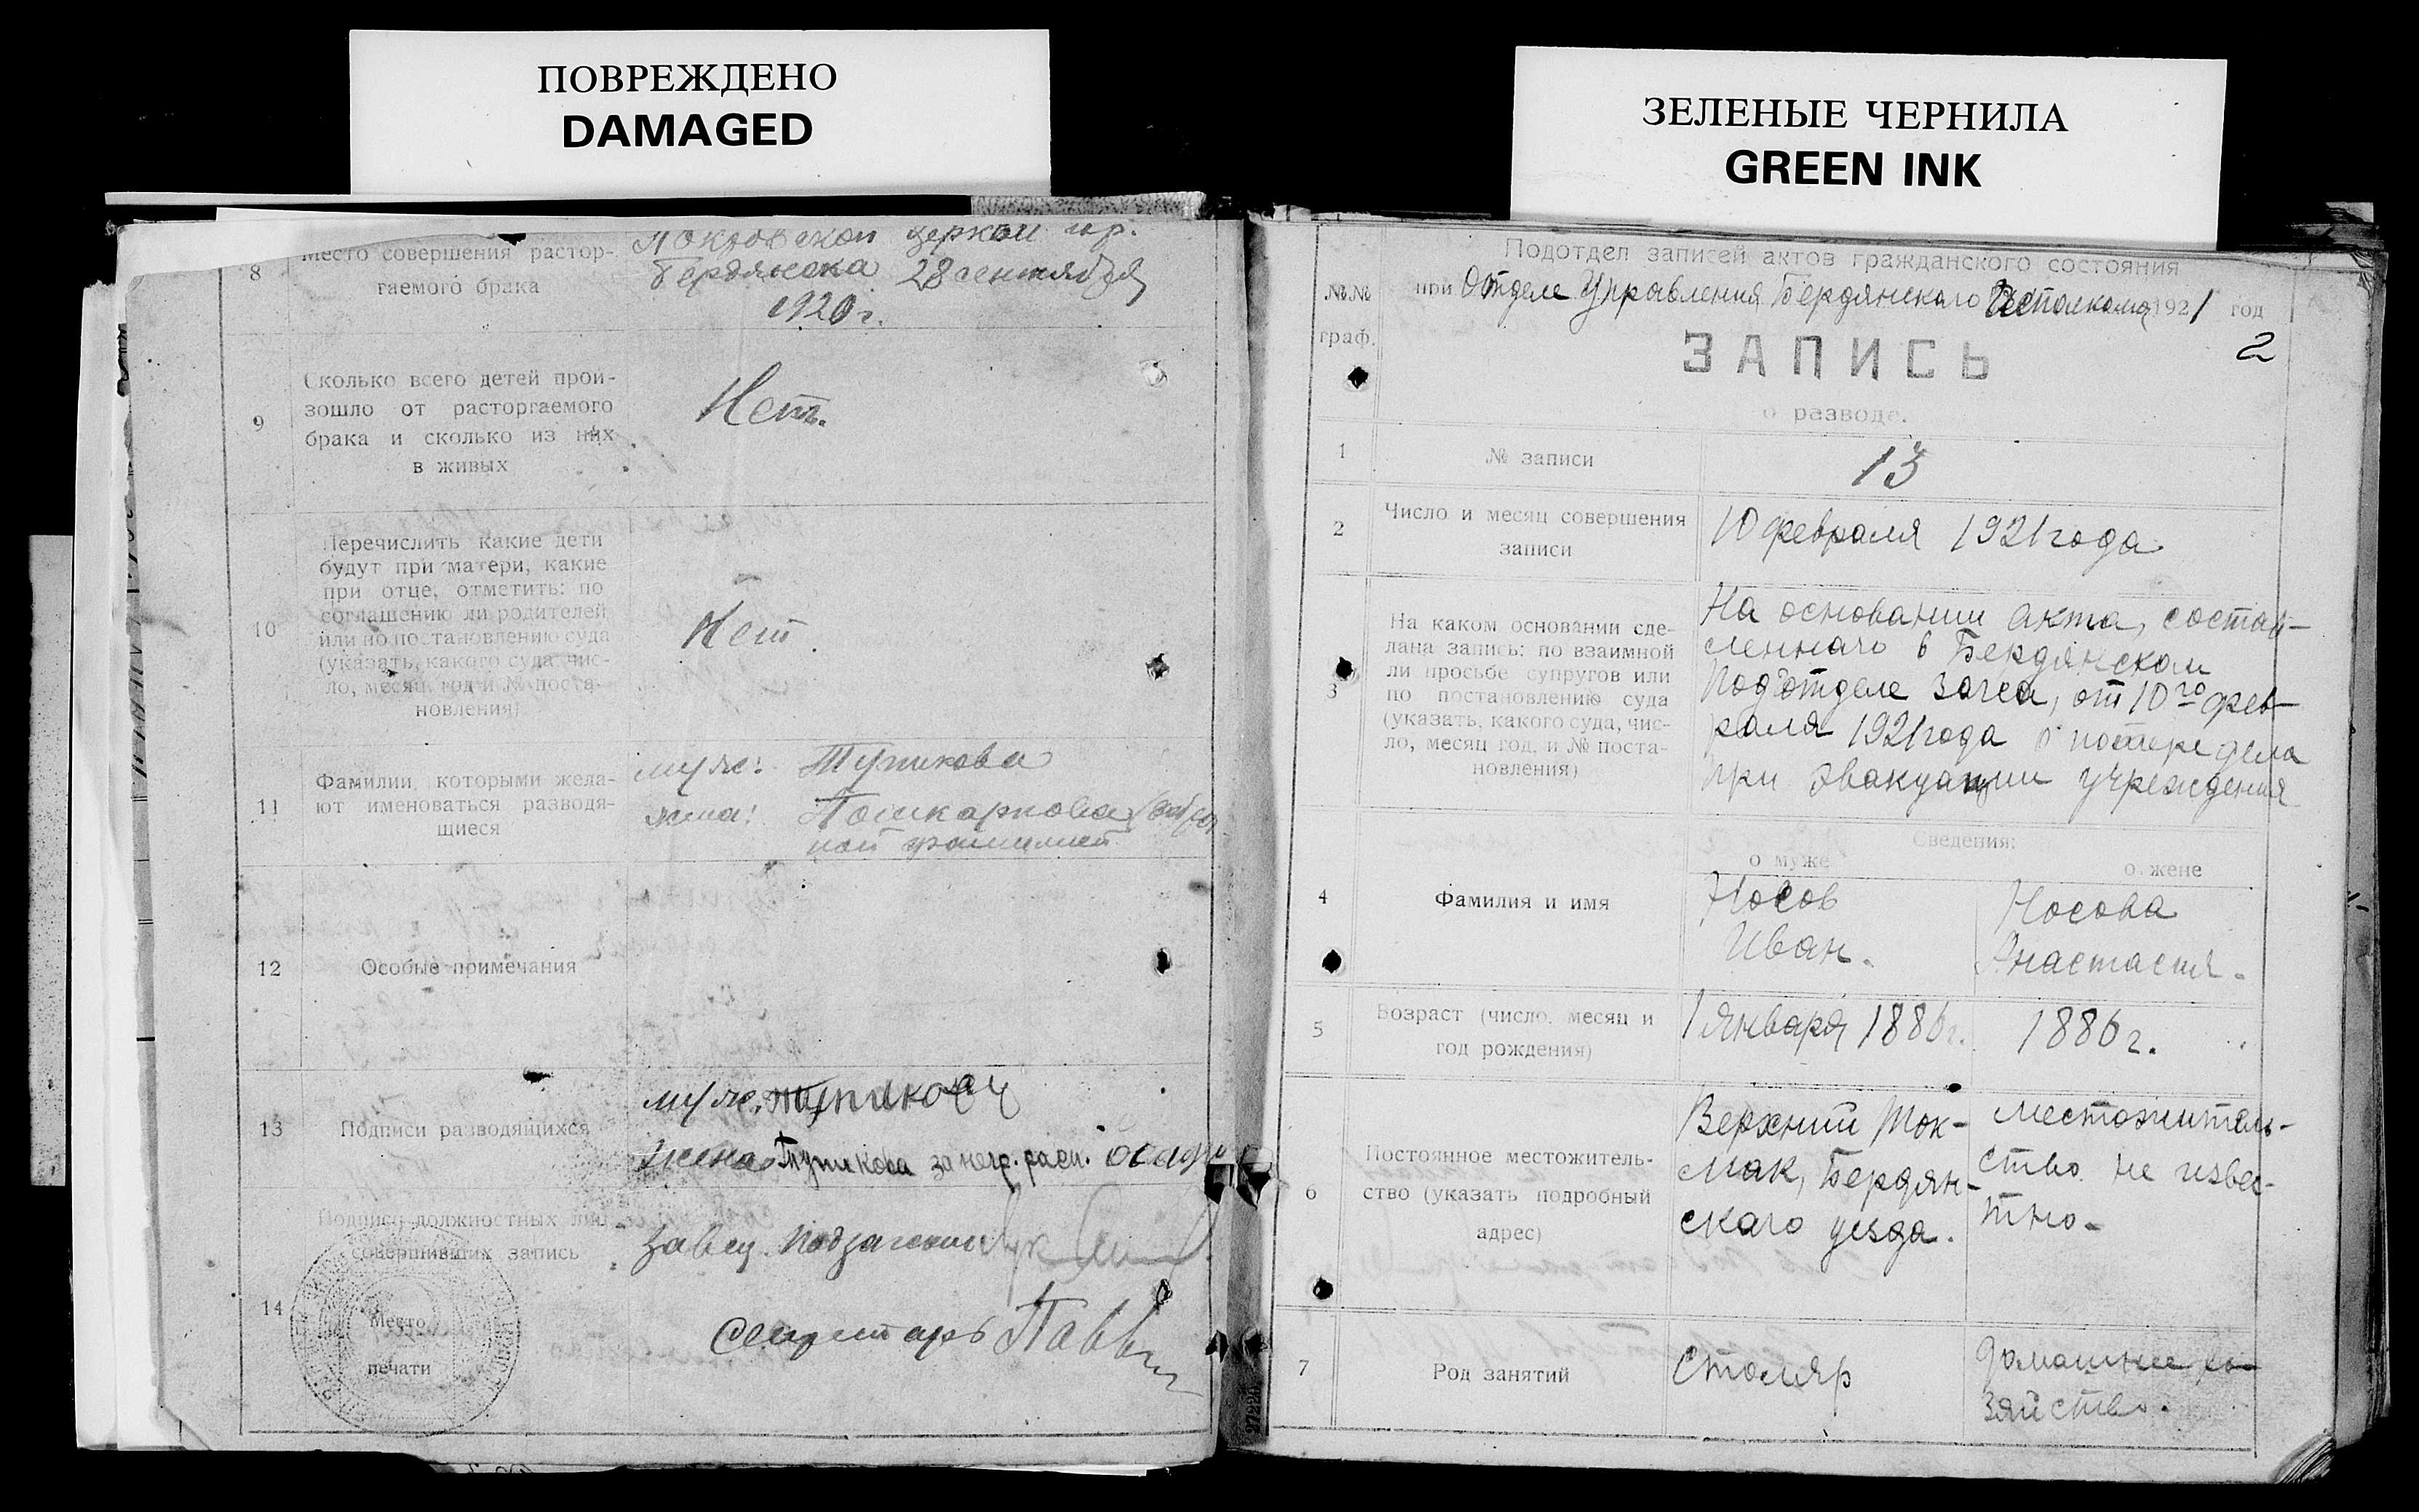 ПОВРЕЖДЕНО
DAMAGED
ЗЕЛЕНЫЕ ЧЕРНИЛА
GREEN INK
8
Место совершения растор-
гаемого брака
Покровской церкви гор.
Бердянска 28 сентября
1920 г.
9
Сколько всего детей прои-
зошло от расторгаемого
брака и сколько из них
в живых
Нет.
10
Перечислить какие дети
будут при матери, какие
при отце, отметить: по
соглашению ли родителей
или по постановлению суда
(указать, какого суда, чис-
ло, месяц, год и № поста-
новления)
Нет.
11
Фамилии, которыми жела-
ют именоваться разводя-
щиеся
муж: Тупикова
жена:
ной фамилией
12
Особые примечания
13
Подписи разводящихся
муж.
жена Тупикова за негр. расп.
Подписи должностных лиц
совершивших запись
14
Место
печати
Завед.
Секретарь
Подотдел записей актов гражданского состояния
№№
граф.
при Отделе Управления Бердянского Исполкома 1921 год
2
ЗАПИСЬ
о разводе.
1
№ записи
13
2
Число и месяц совершения
записи
10 февраля 1921 года
3
На каком основании сде-
лана запись: по взаимной
ли просьбе супругов или
по постановлению суда
(указать, какого суда, чис-
ло, месяц, год, и № поста-
новления)
На основании акта, состав-
леннаго в Бердянском
Подотделе Загса, от 10го фев-
раля 1921 года о потере дела
при эвакуации учреждения
Сведения:
о муже
о жене
4
Фамилия и имя
Носов
Иван.
Носова
Анастасия.
5
Возраст (число, месяц и
год рождения)
1 января 1886 г.
1886 г.
6
Постоянное местожитель-
ство (указать подробный
адрес)
Верхний Ток-
мак, Бердян-
скаго уезда.
местожитель-
ство не извес-
тно.
7
Род занятий
Столяр
домашнее хо-
зяйство.